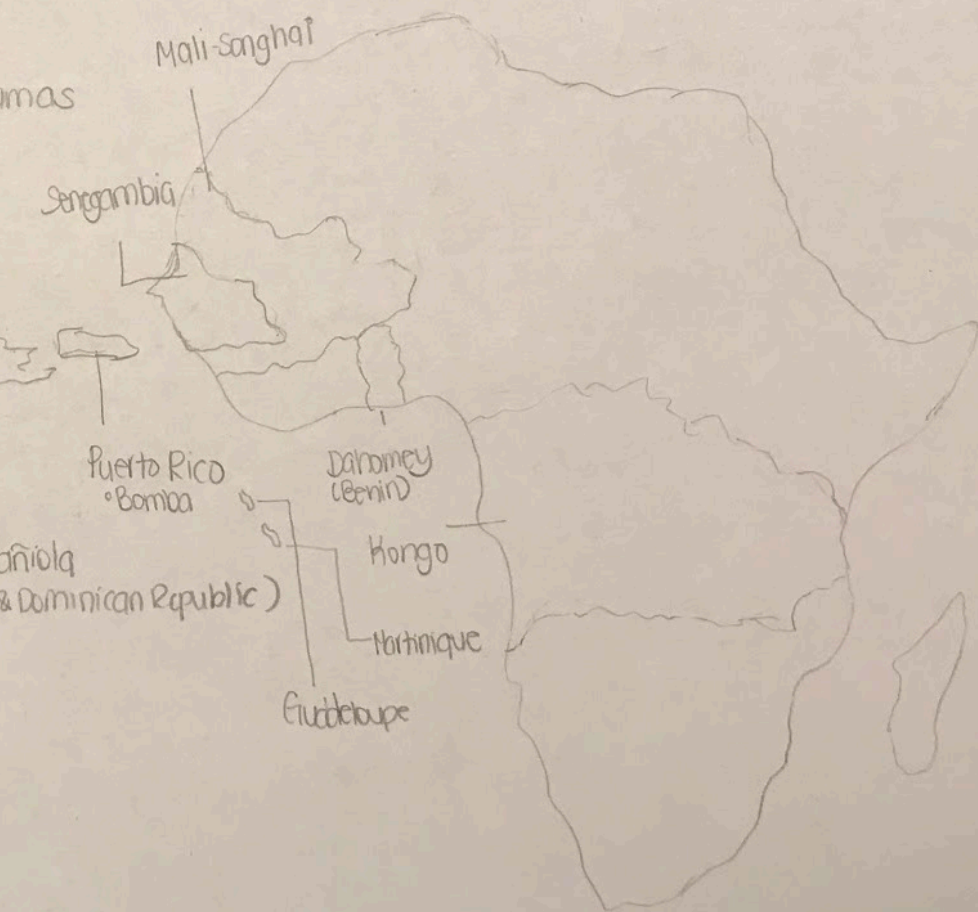 Mali-Songhai
umas
Senegambia
Puerto Rico
°Bomba
Dahomey
(Benin)
Kongo
añiola
& Dominican Republic)
Martinique
Guadeloupe